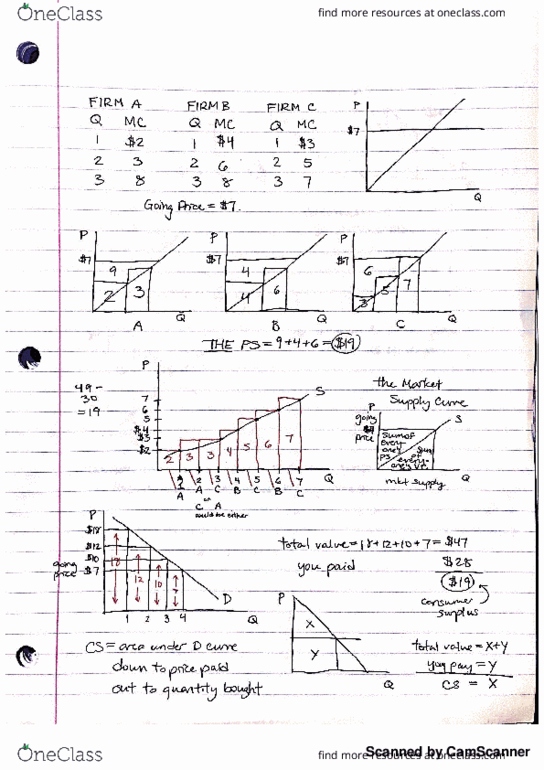 OneClass
find more resources at oneclass.com
FIRM A FIRM B FIRM C
Q MC Q MC Q MC
1 $2 1 $4 1 $3
2 3 2 6 2 5
3 8 3 8 3 7
P
$7
Q
Going Price = $7.
P P P
$7 $7 $7
9 4 6
2 3 4 6 3 5 7
Q Q Q
A B C
THE PS = 9+4+6 = $19
49 -
30
= 19
P
7
6
5
$4
$3
$2
S
2 3 3 4 5 6 7
1 2 3 4 5 6 7 Q
A A C B C B C
C A
could be either
the Market
Supply Curve
P
going
price
S
sum of
every-
one's
PS
sum
of
every-
one's VC
Q
mkt supply
P
$18
$12
$10
going
price $7
18 12 10 7
1 2 3 4
D
Q
total value = 18+12+10+7 = $47
you paid $28
$19
consumer
surplus
CS = area under D curve
down to price paid
out to quantity bought
P
X
Y
Q
total value = X+Y
you pay = Y
CS = X
OneClass
find more resources at oneclass.com
Scanned by CamScanner